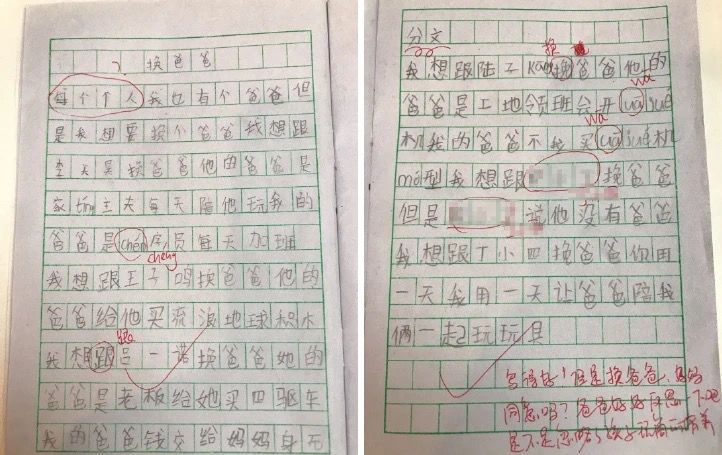 换爸爸
每个个人我也有个爸爸但
是我想要换个爸爸我想跟
李天昊换爸爸他的爸爸是
家tíng主夫每天陪他玩我的
爸爸是chén序员每天加班
cheng
我想跟王子鸣换爸爸他的
爸爸给他买流浪地球积木
跟
我想跟吕一诺换爸爸她的
爸爸是老板给她买四驱车
我的爸爸钱交给妈妈身无
分文
换
我想跟陆子 换爸爸他的
爸爸是工地领班会开uā jué
wā
机我的爸爸不给买uā jué机
wā
mó型我想跟 换爸爸
但是 说他没有爸爸
我想跟丁小四换爸爸你用
一天我用一天让爸爸陪我
俩一起玩玩具
写得好！但是换爸爸，妈妈
同意吗？爸爸好好反思一下吧
是不是忽略了孩子